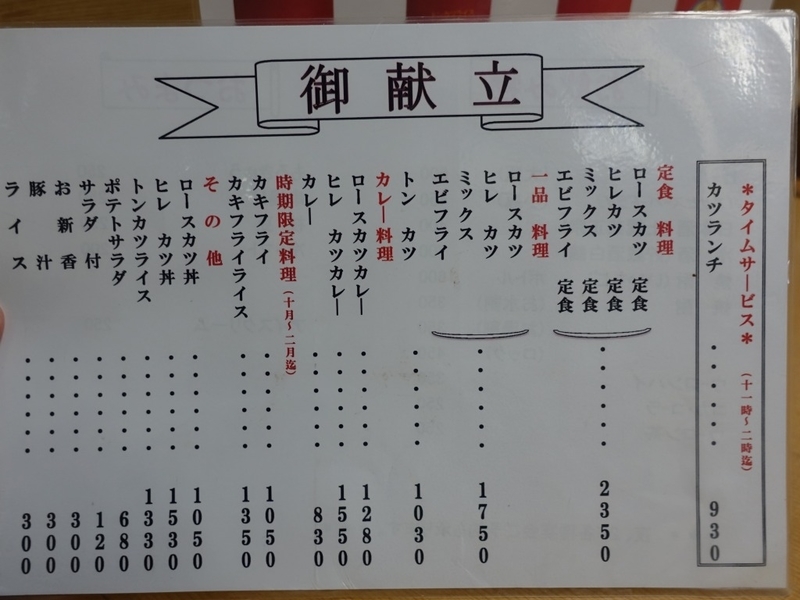 御献立
＊タイムサービス＊（十一時～二時迄）
カツランチ・・・・・・930
定食 料理
ロースカツ 定食
ヒレカツ 定食
ミックス 定食・・・・・・2350
エビフライ 定食
一品 料理
ロースカツ
ヒレ カツ
ミックス・・・・・・1750
エビフライ
トン カツ・・・・・・1030
カレー料理
ロースカツカレー・・・・・・1280
ヒレ カツカレー・・・・・・1550
カレー・・・・・・830
時期限定料理（十月～二月迄）
カキフライ・・・・・・1050
カキフライライス・・・・・・1350
その他
ロースカツ丼・・・・・・1050
ヒレ カツ丼・・・・・・1530
トンカツライス・・・・・・1330
ポテトサラダ・・・・・・680
サラダ付・・・・・・120
お新香・・・・・・300
豚汁・・・・・・300
ライス・・・・・・300